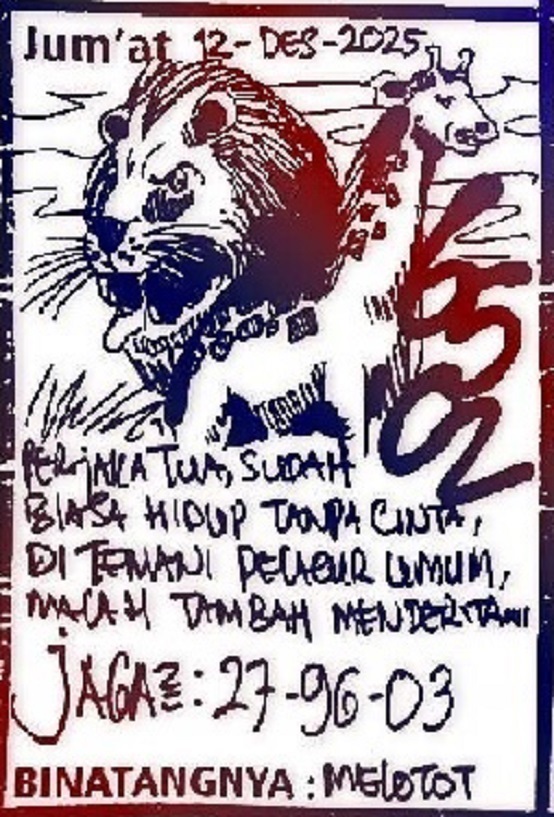 Jum'at 12-DES-2025
05
02
PERJAKA TUA, SUDAH
BIASA HIDUP TANPA CINTA,
DI TEMANI PELACUR UMUM,
MALAH TAMBAH MENDERITA
JAGA2: 27-96-03
BINATANGNYA : MELOTOT